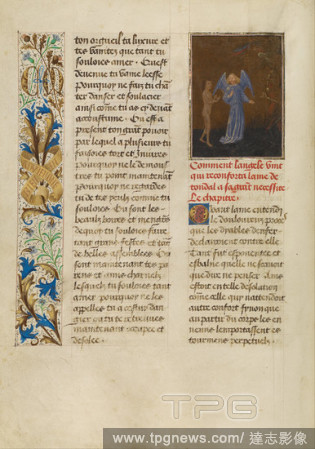 ton orgueil ta luxure et
tes vanites que tant tu
souloies amer. Quest
devenue ta vaine leesse
Pourquoy ne fais tu chan
ter danser et soulacier
ainsi comme tu as
acoustume. Ou est a
present ton grant pouoir
par lequel a plusieurs tu
faisoies tort et Iniure
Pourquoy ne le demou
stres tu point maintenant
Pourquoy ne regardes
tu de tes yeulx comme tu
souloies. Ou sont les
beaulx
dequoy tu souloies faire
tant festes et
de belles assemblees. Ou
sont maintenant tes pa
rens et amis charnelz
lesquelz tu souloies tant
amer pourquoy ne les
appelles tu a cestui dan
gier ou tu te treuves
maintenant
desolee.
Comment langele vint
qui reconforta lame de
tondal a sa grant necessite
Le chapitre.
Quant lame entendy
les douloureux
que les dyables
delamoient contre elle
Tant fut espoventee et
esbahie quelle ne savoit
que dire ne penser. Ains
estoit en telle desolation
comme celle qui nattendoit
autre confort synon que
au partir du corps les en
nemis lemportassent en
tourment perpetuel.
TPG
www.tpgnews.com/ 達志影像